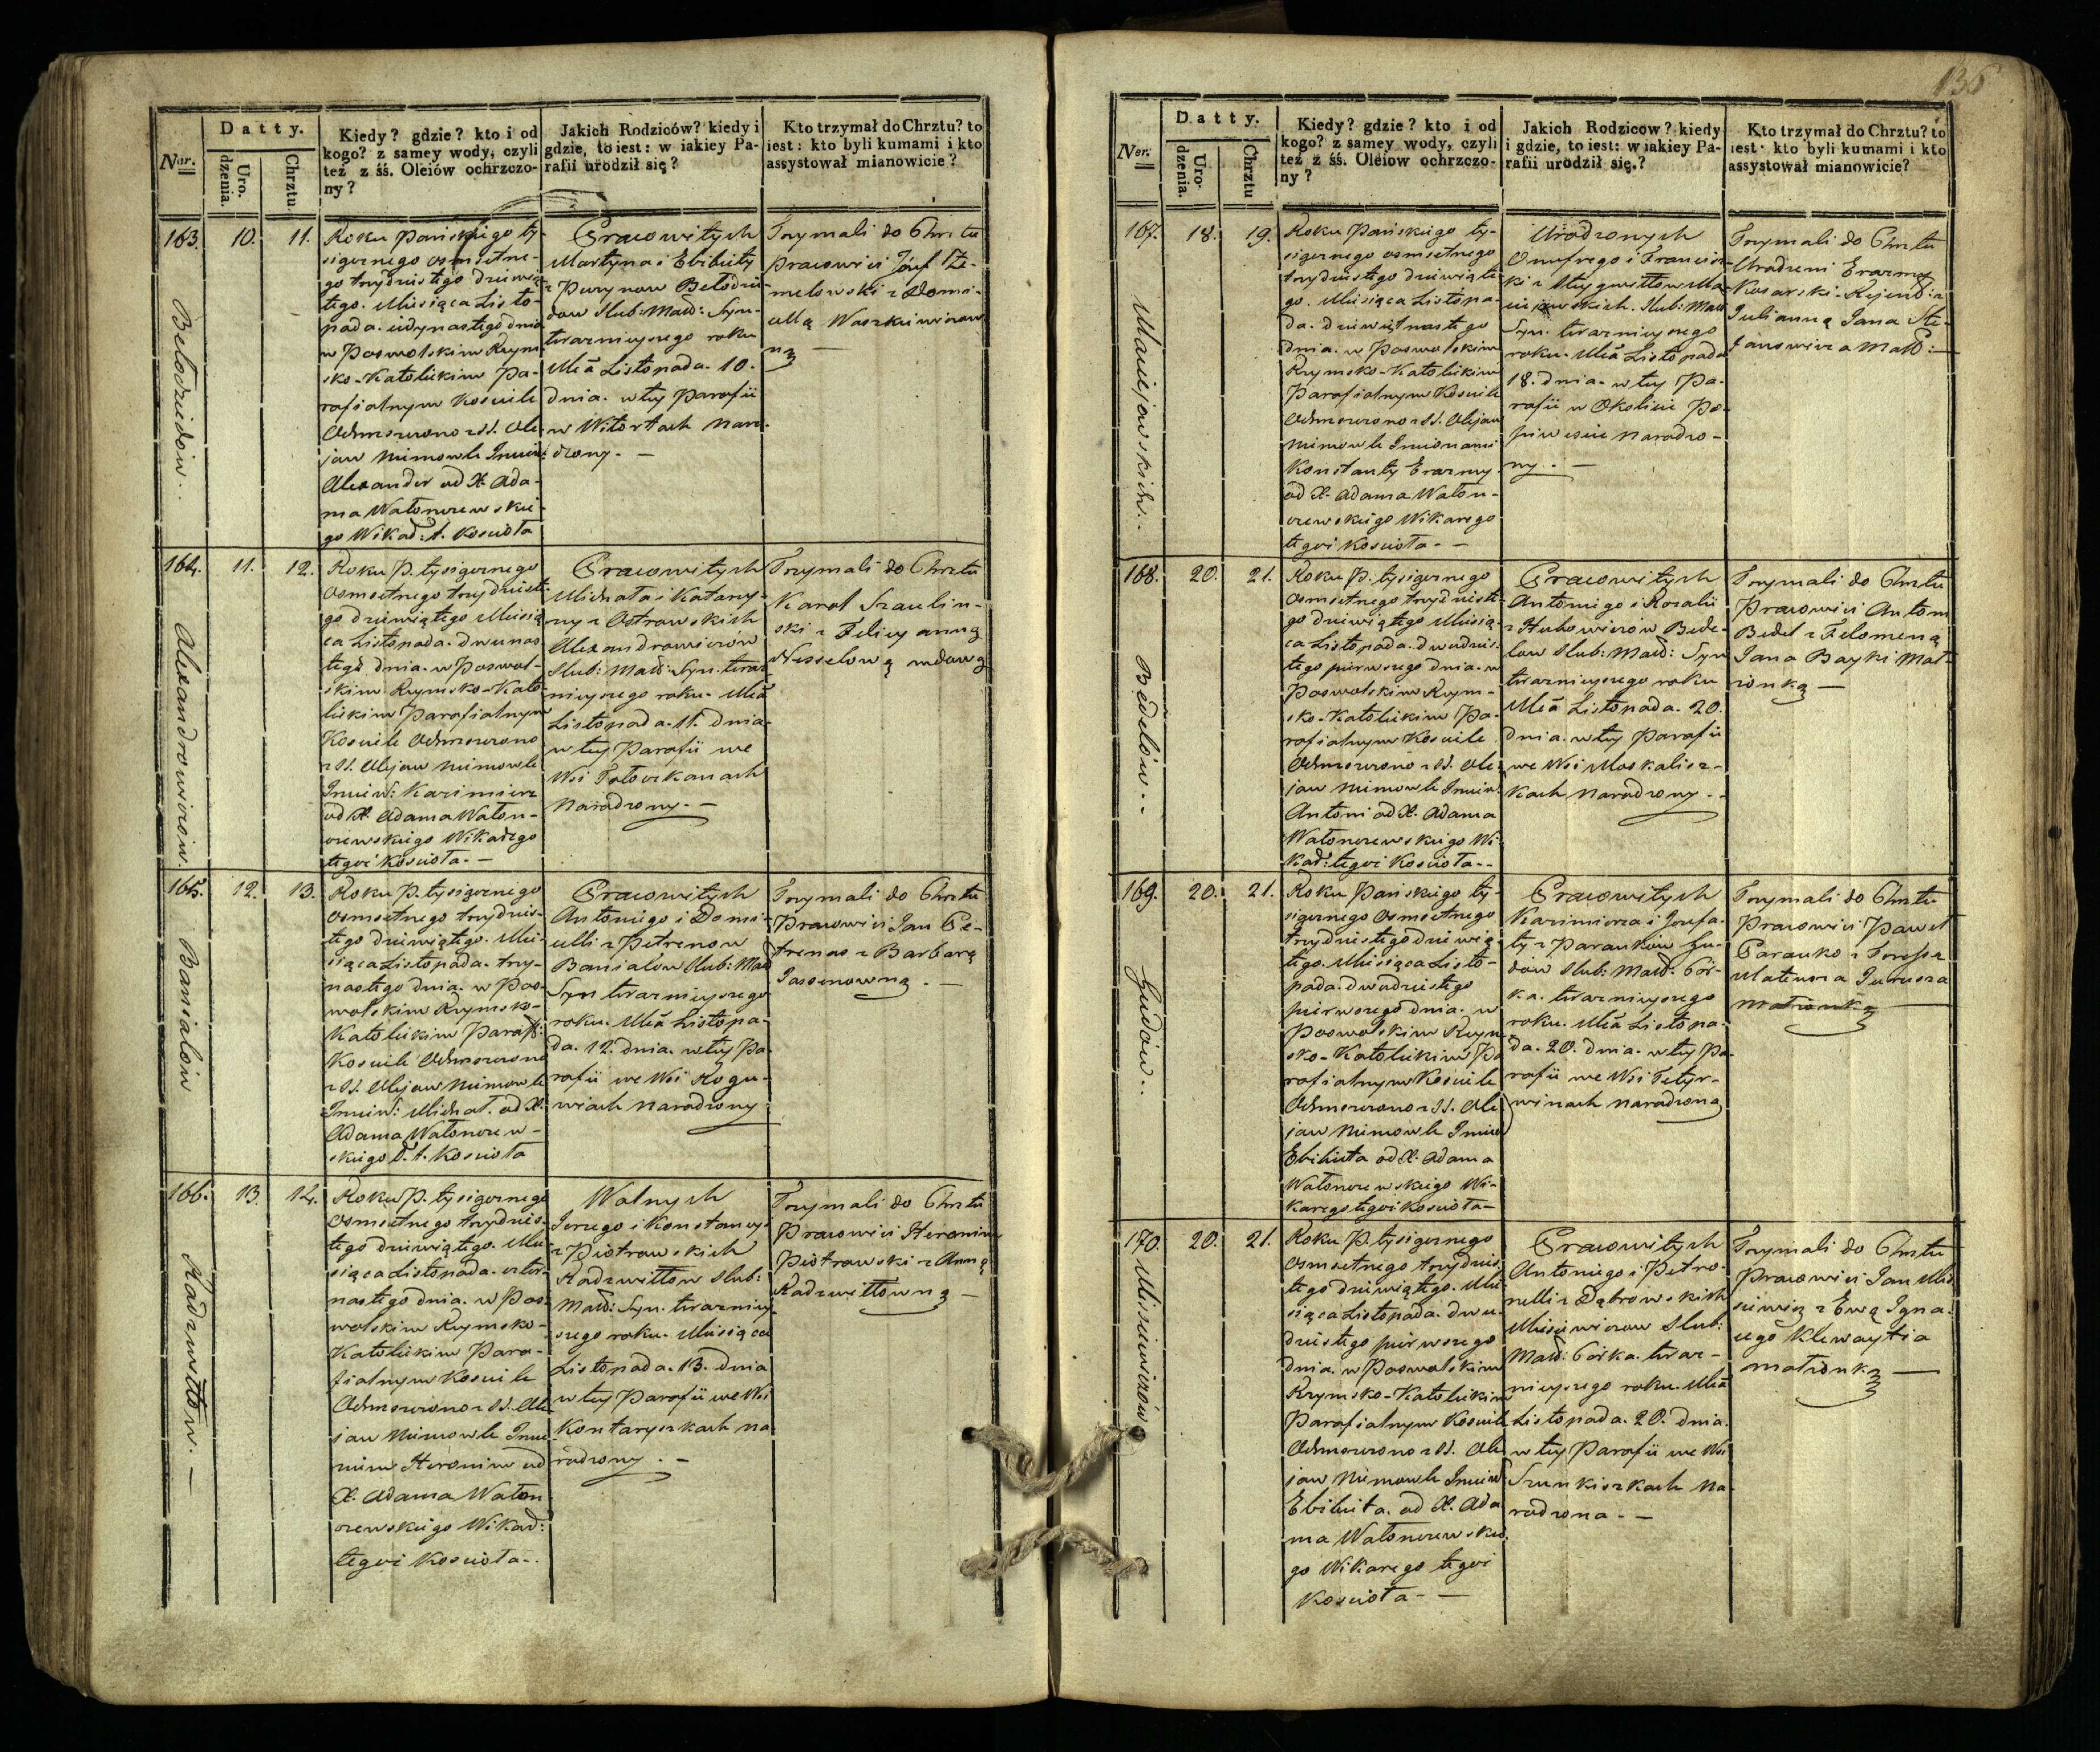 135
Datty.
Ner.
Uro-
dzenia.
Chrztu
Kiedy? gdzie? kto i od
kogo? z samey wody, czyli
też z śś. Oleiów ochrzczo-
ny?
Jakich Rodziców? kiedy i
gdzie, to iest: w iakiey Pa-
rafii urodził się?
Kto trzymał do Chrztu? to
iest: kto byli kumami i kto
assystował mianowicie?
163.
Bełodziedów..
10.
11.
Roku Pańskiego ty-
sięcznego osmsetne-
go trzydziestego dziewią
tego. Miesiąca Listo-
pada. iedynastego dnia
w Poswolskim Rzym-
sko-Katolickim Pa-
rafialnym Kosciele
Ochrzczono z SS. Ole-
jow Niemowle Imien:
Alexander od X. Ada-
ma Wałonczewskie-
go Wikar: t. Kościoła
Pracowitych
Martyna i Elżbiety
z Purynow Bełodzie-
dow Slub: Małż: Syn-
terazniejszego roku
Mca Listopada. 10.
dnia. w tey Parafii
w Witortach naro-
dzony. –
Trzymali do Chrztu
pracowici Józef Że-
melowski z Domi-
cellą Waszkiewiczow
ną –
164.
Alexandrowiczow.
11.
12.
Roku P. tysięcznego
Osmsetnego trzydzieste-
go dziewiątego Miesią
ca Listopada. dwunas
tego dnia. w Poswol-
skim. Rzymsko-Kato
lickim Parafialnym
Kosciele Ochrzczono
z SS. Olejow niemowle
Imien: Kazimierz
od X. Adama Wałon-
czewskiego Wikarego
tegoż Kościoła. –
Pracowitych
Michała i Katarzy-
ny z Ostrowskich
Alexandrowiczów
Slub: Małż: Syn. teraz
niejszego roku. Mca
Listopada. 11. dnia.
w tey Parafii we
Wsi Tołoczkanach
narodzony. –
Trzymali do Chrztu
Karol Szaulin-
ski z Felicyanną
Nesselową wdową
165.
Banialow
12.
13.
Roku P. tysięcznego
Osmsetnego trzydzies-
tego dziewiątego. Mie-
siąca Listopada. trzy-
nastego dnia. w Pos-
wolskim Rzymsko-
Katolickim Paraf:
Kosciele Ochrzczono
z SS. Olejow niemowle
Imien: Michał. od X.
Adama Wałonczew-
skiego W. t. Kościoła
Pracowitych
Antoniego i Domi-
celli z Petrenow
Banialow Slub: Małż
Syn terazniejszego
roku. Mca Listopa-
da. 12. dnia. w tey Pa
rafii we Wsi Rogu-
wiach narodzony
Trzymali do Chrztu
Pracowici Jan Pe-
trenas z Barbarą
Jasienowną. –
166.
Radzwiłłow. –
13.
14.
Roku P. tysięcznego
Osmsetnego trzydzies-
tego dziewiątego. Mie
siąca Listopada. czter-
nastego dnia. w Pos-
wolskim Rzymsko-
Katolickim Para-
fialnym Kosciele
Ochrzczono z SS. Ole
jow Niemowle Imie
niem Hieronim od
X. Adama Wałon
czewskiego Wikar:
tegoż Kościoła..
Wolnych
Jerzego i Konstancyi
z Piotrowskich
Radzwiłłow Slub:
Małż: Syn. terazniey-
szego roku. Miesiąca
Listopada. 13. dnia
w tey Parafii we Wsi
Kontaryszkach na
rodzony. –
Trzymali do Chrztu
Pracowici Hieronim
Piotrowski z Anną
Radzwiłłowną –
Datty.
Ner.
Uro-
dzenia.
Chrztu
Kiedy? gdzie? kto i od
kogo? z samey wody, czyli
też z śś. Oleiow ochrzczo-
ny?
Jakich Rodzicow? kiedy
i gdzie, to iest: w iakiey Pa-
rafii urodził się?
Kto trzymał do Chrztu? to
iest: kto byli kumami i kto
assystował mianowicie?
167.
Maciejowskich..
18.
19.
Roku Pańskiego ty-
sięcznego osmsetnego
trzydziestego dziewiąte
go. Miesiąca Listopa-
da. dziewiętnastego
dnia. w Poswolskim
Rzymsko-Katolickim
Parafialnym Kosciele
Ochrzczono z SS. Olejow
Niemowle Imionami
Konstanty Erazmy
od X. Adama Wałon-
czewskiego Wikarego
tegoż Kościoła. –
Urodzonych
Onufrego i Francisz-
ki z Mongwiłłow Ma-
ciejowskich. Slub: Małż
Syn. terazniejszego
roku. Mca Listopada
18. dnia. w tey Pa-
rafii w Okolicy Po-
piwesie narodzo-
ny. –
Trzymali do Chrztu
Urodzeni Erazmy
Kosarski. Rejent: z
Julianną Jana Ste-
fanowicza Małż: –
168.
Bedelów..
20.
21.
Roku P. tysięcznego
Osmsetnego trzydzieste-
go dziewiątego Miesią-
ca Listopada. dwudzies-
tego pierwszego dnia. w
Poswolskim Rzym-
sko-Katolickim Pa-
rafialnym Kosciele
Ochrzczono z SS. Ole-
jow niemowle Imien:
Antoni od X. Adama
Wałonczewskiego Wi-
kar: tegoż Kościoła..
Pracowitych
Antoniego i Rozalii
z Hubowiczów Bede-
low Slub: Małż: Syn
terazniejszego roku
Mca Listopada. 20.
dnia. w tey Parafii
we Wsi Moskalisz-
kach narodzony. –
Trzymali do Chrztu
Pracowici Antoni
Bedel z Felomeną
Jana Bayki Mał-
żonką –
169.
Gudow..
20.
21.
Roku Pańskiego ty-
sięcznego Osmsetnego
trzydziestego dziewią-
tego. Miesiąca Listo-
pada. dwudziestego
pierwszego dnia. w
Poswolskim Rzym
sko-Katolickim Pa
rafialnym Kosciele
Ochrzczono z SS. Ole
jow Niemowle Imien
Elżbieta od X. Adama
Wałonczewskiego Wi-
karego tegoż Kościoła –
Pracowitych
Kazimierza i Jozefa-
ty z Paraukow Gu-
dow Slub: Małż: Cór-
ka. terazniejszego
roku. Mca Listopa-
da. 20. dnia. w tey Pa-
rafii we Wsi Tetyr-
winach narodzona
Trzymali do Chrztu
Pracowici Paweł
Parauko z
Mateusza
małżonką
170.
Missiewiczów
20.
21.
Roku P. tysięcznego
Osmsetnego trzydzies
tego dziewiątego. Mie-
siąca Listopada. dwu-
dziestego pierwszego
dnia. w Poswolskim
Rzymsko-Katolickim
Parafialnym Kosciele
Ochrzczono z SS. Ole
jow Niemowle Imien
Elżbieta. od X. Ada
ma Wałonczewskie
go Wikarego tegoż
Kościoła. –
Pracowitych
Antoniego i Petro-
nelli z Dąbrowskich
Missiewiczow Slub:
Małż: Córka. teraz-
niejszego roku. Mca
Listopada. 20. dnia.
w tey Parafii we Wsi
Szunkiszkach na
rodzona. –
Trzymali do Chrztu
Pracowici Jan Mis
siewicz z Ewą Igna-
cego Klewaytia
małżonką –